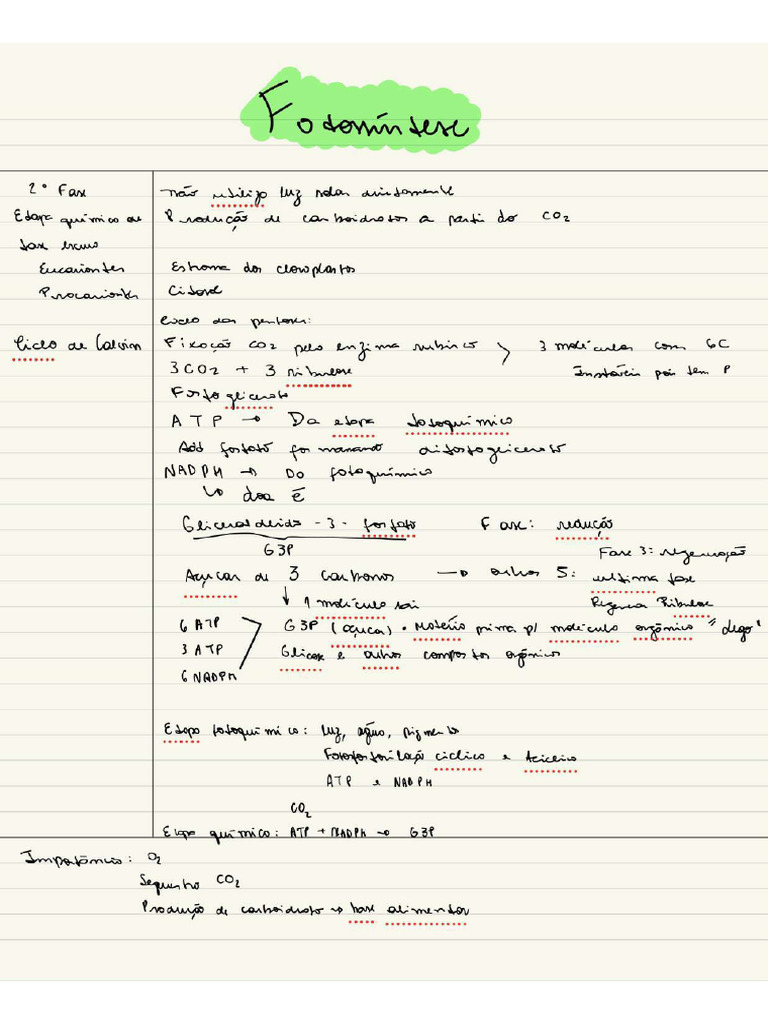 Fotossíntese
2° Fase
Etapa química ou
fase escura
Eucariontes
Procariontes
Ciclo de Calvin
não utiliza luz solar diretamente
Produção de carboidratos a partir do CO2
Estroma dos cloroplastos
Citosol
Ciclo das pentoses:
Fixação CO2 pela enzima rubisco > 3 moléculas com 6C
3CO2 + 3 ribulose Instável pois tem P
Fosfoglicerato
ATP → Da etapa fotoquímica
Add fosfato formando difosfoglicerato
NADPH → Da fotoquímica
↳ doa ē
Gliceraldeído-3-fosfato Fase: redução
G3P Fase 3: regeneração
Açúcar de 3 carbonos → outros 5: última fase
↓ 1 molécula sai Regenera Ribulose
6 ATP G3P (açúcar) • Matéria prima p/ molécula orgânica "lego"
3 ATP Glicose e outros compostos orgânicos
6 NADPH
Etapa fotoquímica: luz, água, pigmento
Fotofosforilação cíclica e acíclica
ATP e NADPH
CO2
Etapa química: ATP + NADPH → G3P
Importância: O2
Sequestro CO2
Produção de carboidrato → base alimentar